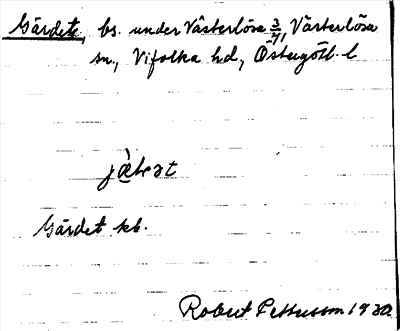 Gärdet, bs. under Västerlösa 3/41, Västerlösa
sn., Vifolka hd, Östergötl. l
Gärdet kb.
Robert Pettersson 1930.